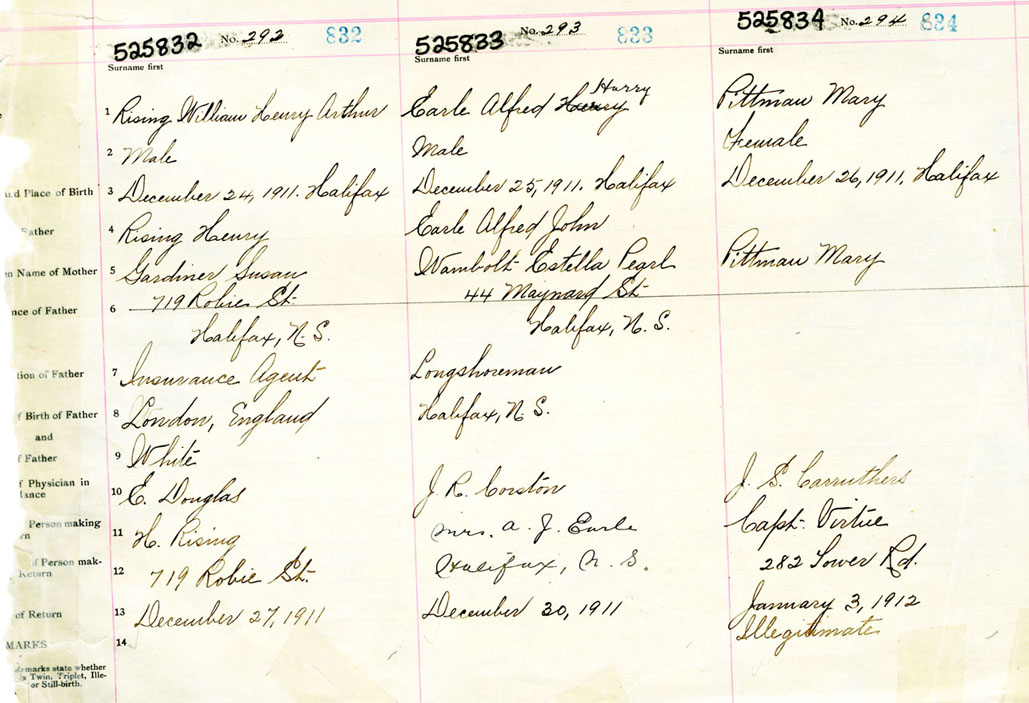 525832 No. 292 832
Surname first
1 Rising William Henry Arthur
2 Male
3 December 24, 1911. Halifax
4 Rising Henry
5 Gardiner Susan
6 719 Robie St.
Halifax, N.S.
7 Insurance Agent
8 London, England
9 White
10 E. Douglas
11 H. Rising
12 719 Robie St.
13 December 27, 1911
14
525833 No. 293 833
Surname first
Harry
Earle Alfred Henry
Male
December 25, 1911. Halifax
Earle Alfred John
Wambolt Estella Pearl
44 Maynard St.
Halifax, N.S.
Longshoreman
Halifax, N.S.
J. R. Corston
Mrs. A. J. Earle
Halifax, N.S.
December 30, 1911
525834 No. 294 834
Surname first
Pittman Mary
Female
December 26, 1911. Halifax
Pittman Mary
J. S. Carruthers
Capt. Virtue
282 Tower Rd.
January 3, 1912
Illegitimate
Place of Birth
Father
Name of Mother
of Father
of Father
Birth of Father
and
Father
Physician in
Person making
Person mak-
Return
of Return
MARKS
state whether
Twin, Triplet, Ille-
or Still-birth.